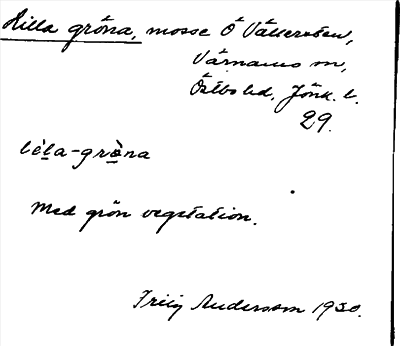 Lilla gröna, mosse Ö Välleråsen,
Värnamo sn,
Östbo hd, Jönk. l.
29.
lèla-gròna
Med grön vegetation.
Andersson 1930.